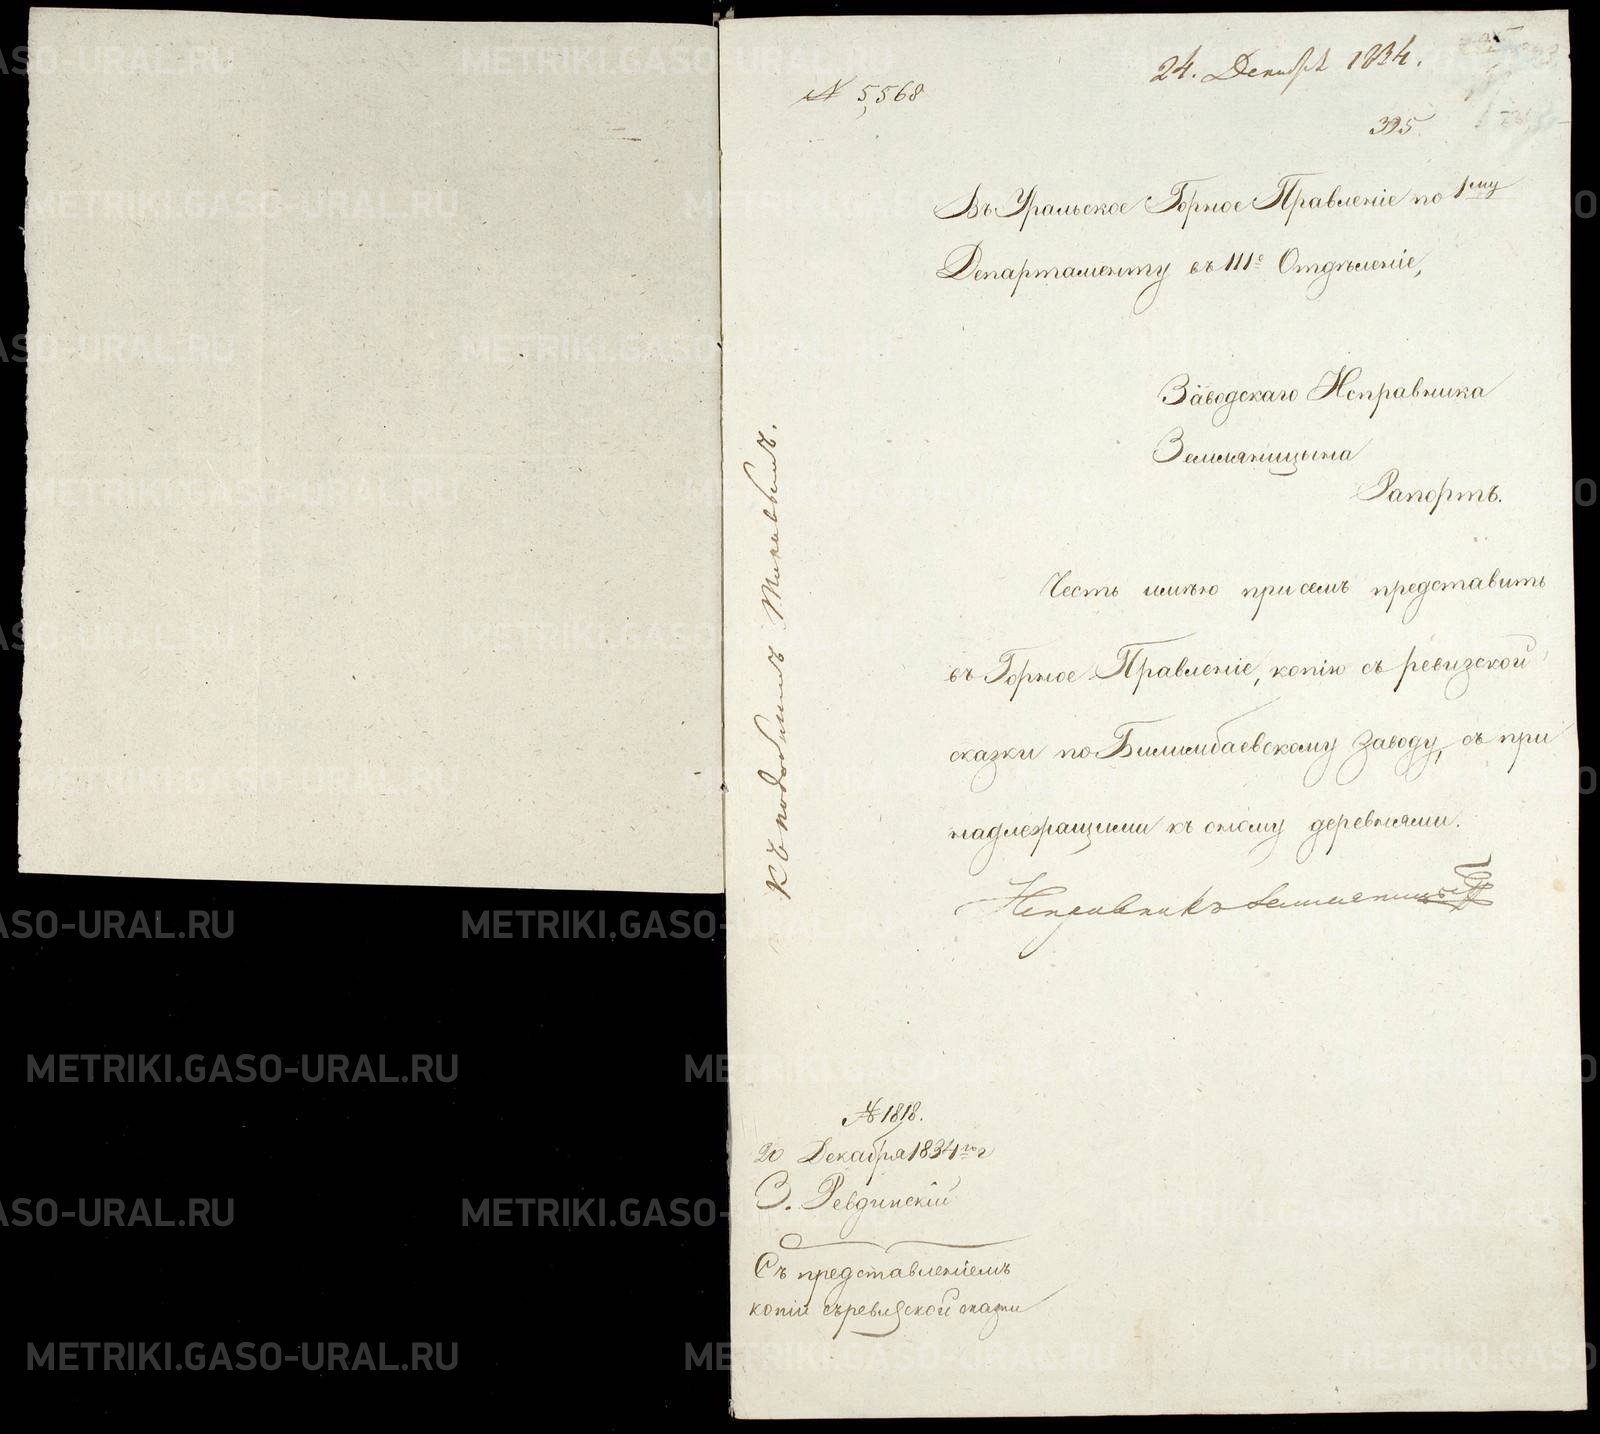 № 5,568
24. Декабря 1834.
395
Въ Уральское Горное Правленіе по 1му
Департаменту въ IIIе Отдѣленіе,
Заводскаго Исправника
Земляницына
Рапортъ.
Честь имѣю при семъ представить
въ Горное Правленіе, копію съ ревизской
сказки по Билимбаевскому заводу, съ при
надлежащими къ оному деревнями.
Исправникъ Земляницынъ
Къ подобнымъ
№ 1818.
20 Декабря 1834го г
З. Ревдинскій
Съ представленіемъ
копіи съ ревизской сказки
METRIKI.GASO-URAL.RU